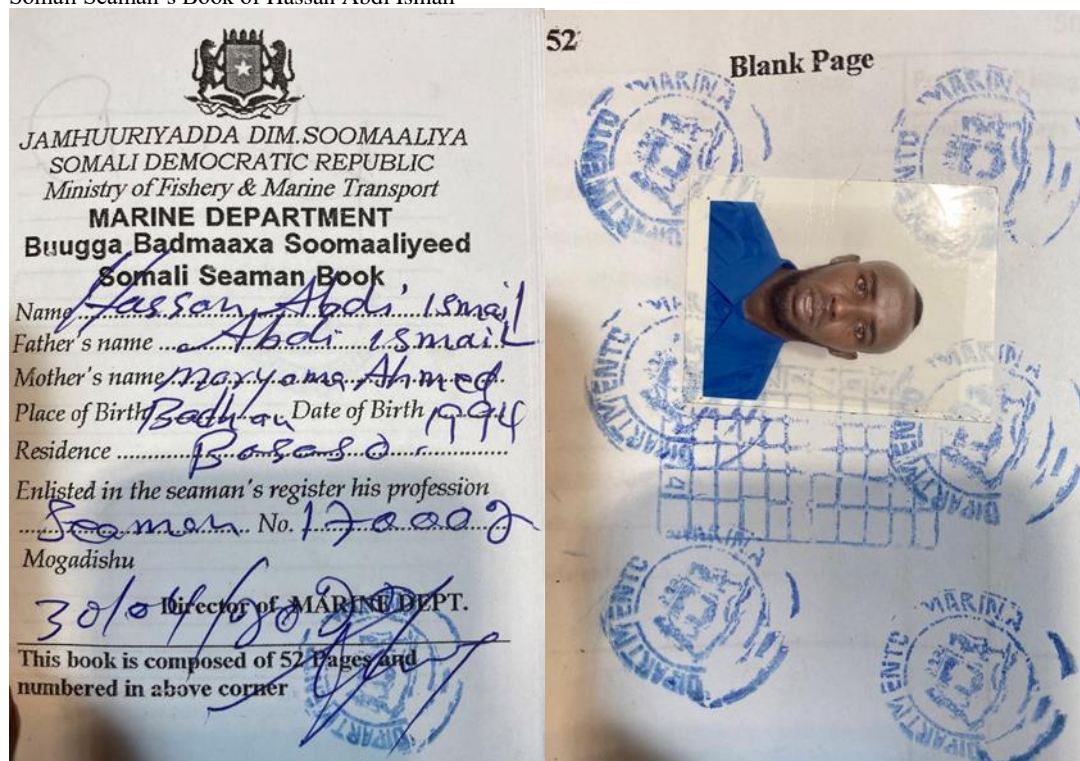 Somali Seaman's Book of Hassan Abdi Ismail
JAMHUURIYADDA DIM.SOOMAALIYA
SOMALI DEMOCRATIC REPUBLIC
Ministry of Fishery & Marine Transport
MARINE DEPARTMENT
Buugga Badmaaxa Soomaaliyeed
Somali Seaman Book
Name Hassan Abdi Ismail
Father's name Abdi Ismail
Mother's name Maryama Ahmed
Place of Birth Badhan Date of Birth 1994
Residence Bosaso
Enlisted in the seaman's register his profession
Seaman No.
Mogadishu
30/04/
Director of MARINE DEPT.
This book is composed of 52 Pages and
numbered in above corner
MARINA
52
Blank Page
DIPARTIMENTO MARINA
DIPARTIMENTO MARINA
DIPARTIMENTO MARINA
DIPARTIMENTO MARINA
DIPARTIMENTO MARINA
DIPARTIMENTO MARINA